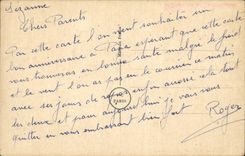 Sézanne
Chers Parents
Par cette carte l'on vient souhaiter un
bon anniversaire à Papa esperant que cette carte
vous trouvera en bonne santé malgré le froid
et le vent l'on a pas eu le courrier ce matin
avec ses jours de enfin aussi cela
les deux et pour aujourd'hui je vous
quitter en vous embrassant bien fort
Roger
PARIS